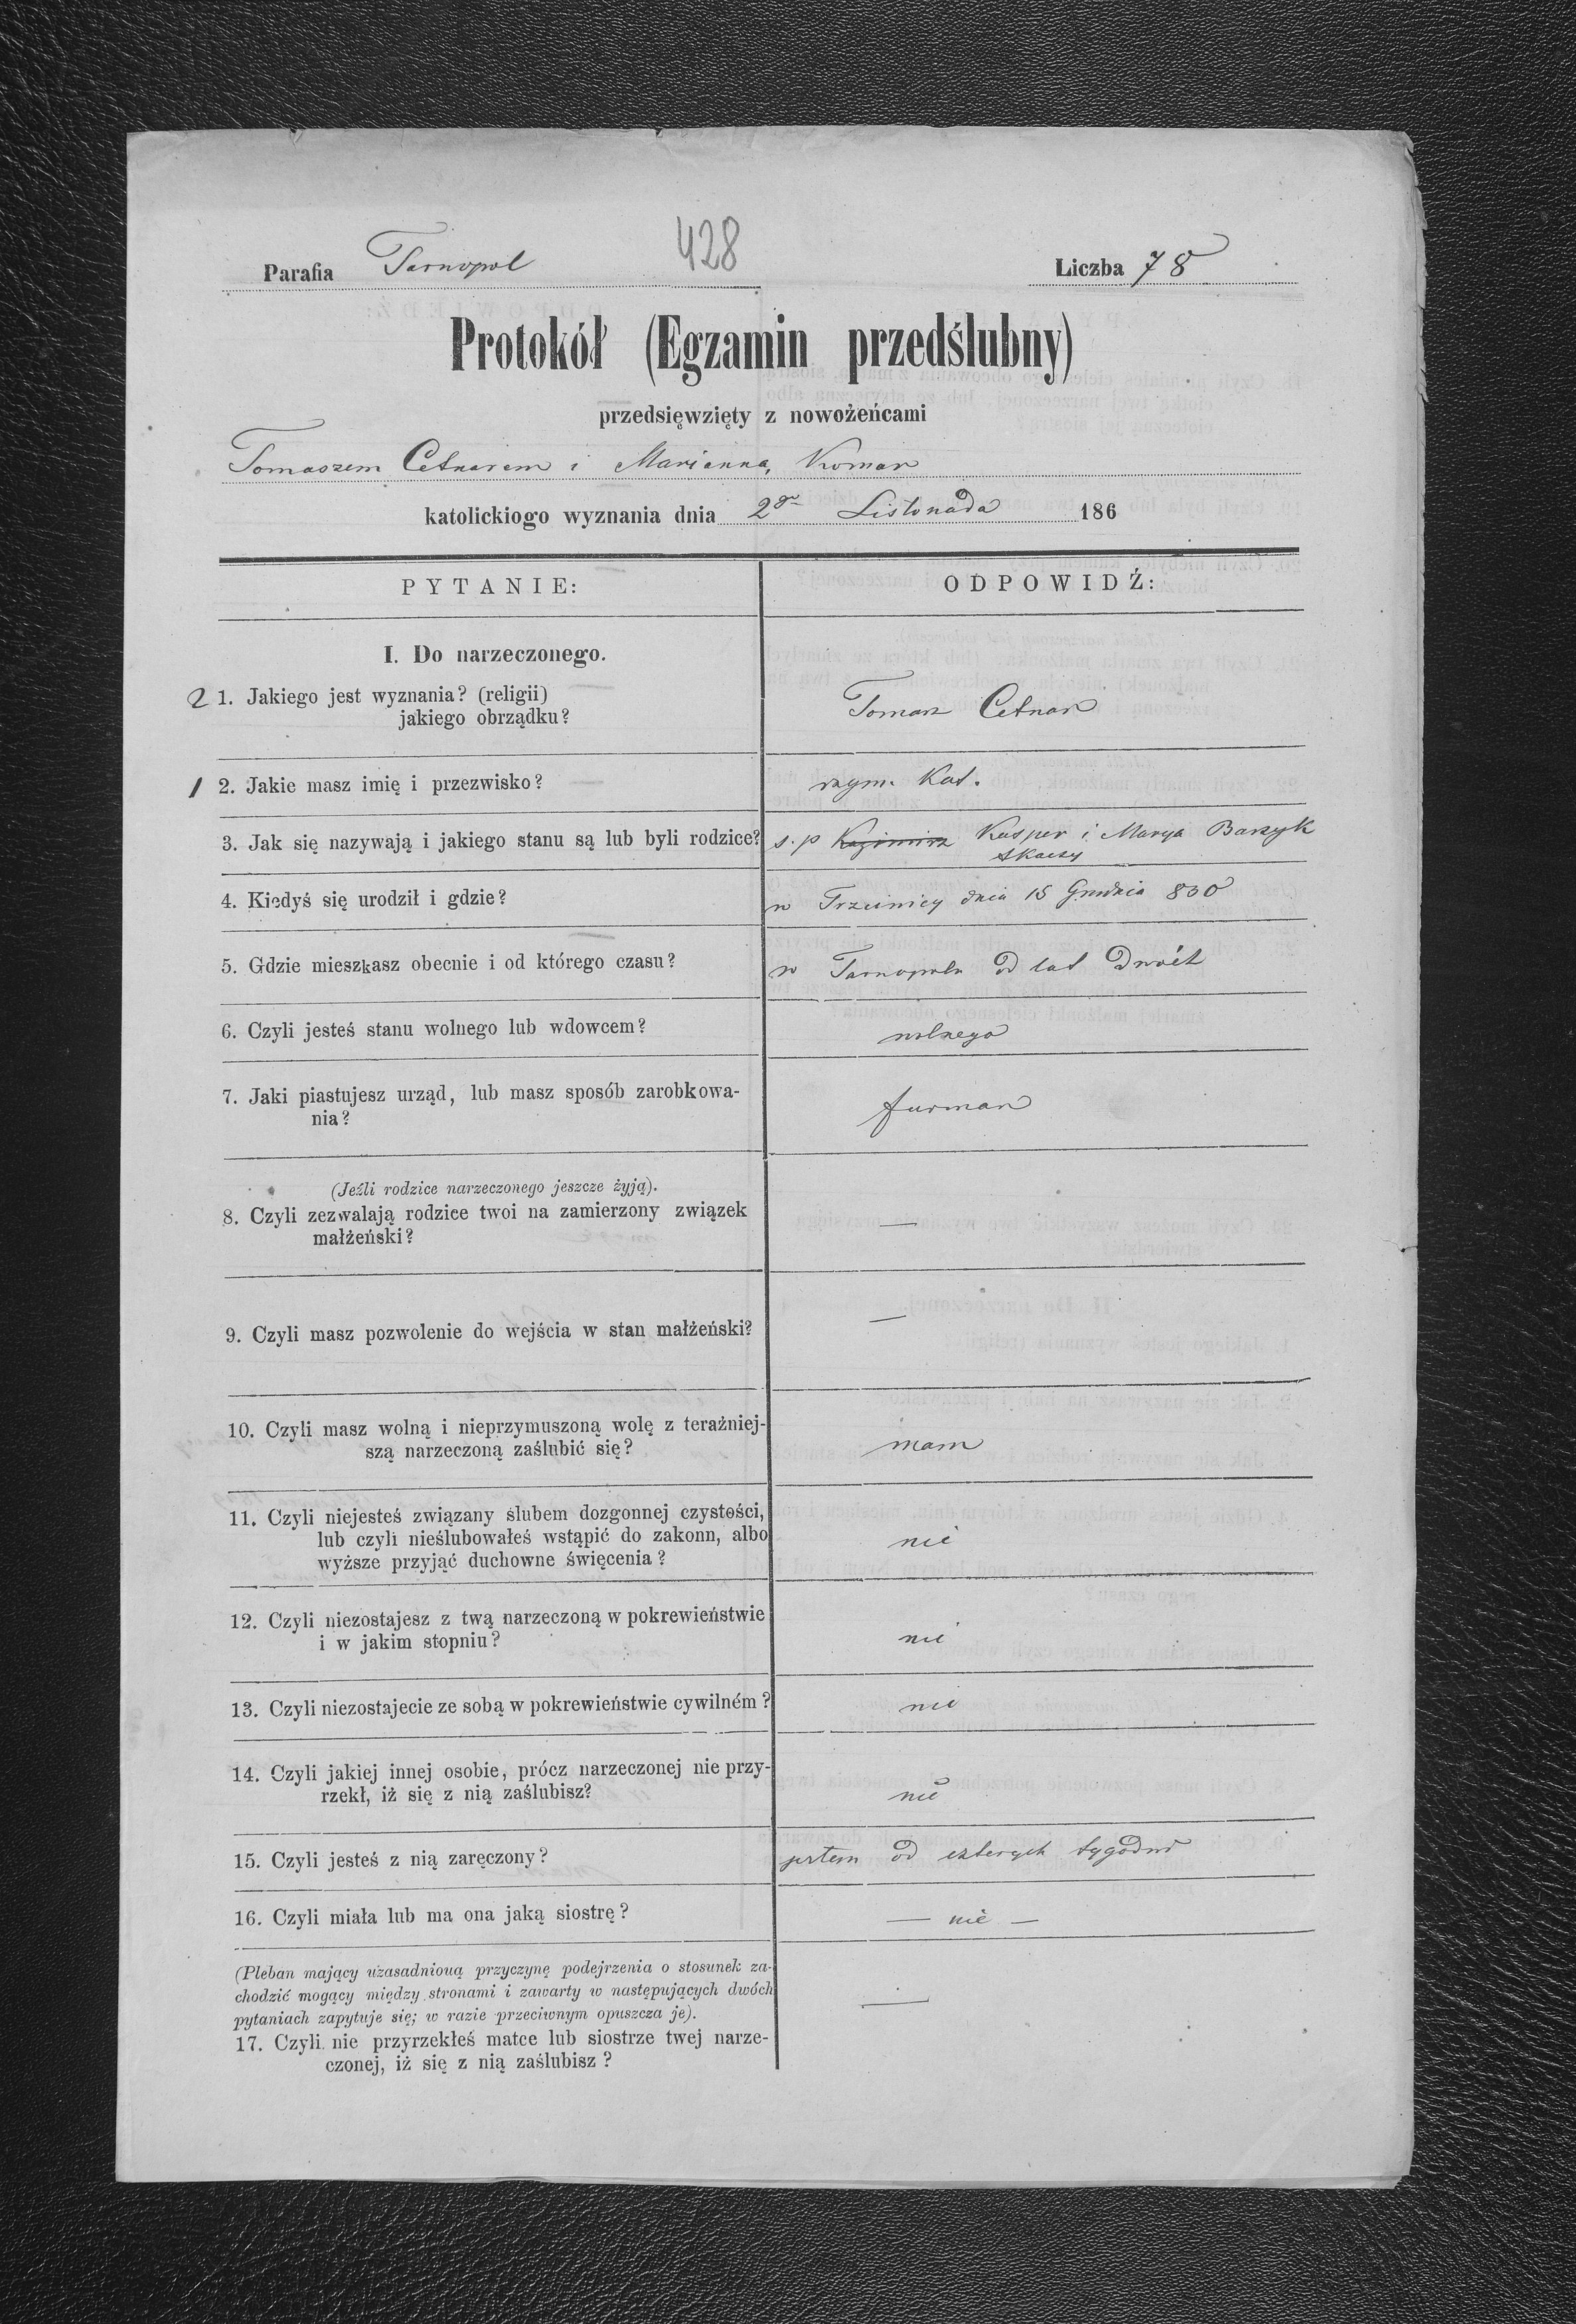 428
Parafia Tarnopol Liczba 78
Protokół (Egzamin przedślubny)
przedsięwzięty z nowożeńcami
Tomaszem Cetnarem i Marianną Komar
katolickiogo wyznania dnia 2go Listopada 186
PYTANIE: ODPOWIDŹ:
I. Do narzeczonego.
2 1. Jakiego jest wyznania? (religii)
jakiego obrządku?
Tomasz Cetnar
1 2. Jakie masz imię i przezwisko?
rzym. Kat.
3. Jak się nazywają i jakiego stanu są lub byli rodzice?
s. p Kazimirz Kasper i Marya Barzyk
4. Kiedyś się urodził i gdzie?
w Trzcinicy dnia 15 Grudnia 830
5. Gdzie mieszkasz obecnie i od którego czasu?
w Tarnopolu od lat Dwóch
6. Czyli jesteś stanu wolnego lub wdowcem?
wolnego
7. Jaki piastujesz urząd, lub masz sposób zarobkowa-
nia?
furman
(Jeźli rodzice narzeczonego jeszcze żyją).
8. Czyli zezwalają rodzice twoi na zamierzony związek
małżeński?
—
9. Czyli masz pozwolenie do wejścia w stan małżeński?
—
10. Czyli masz wolną i nieprzymuszoną wolę z teraźniej-
szą narzeczoną zaślubić się?
mam
11. Czyli niejesteś związany ślubem dozgonnej czystości,
lub czyli nieślubowałeś wstąpić do zakonn, albo
wyższe przyjąć duchowne święcenia?
nie
12. Czyli niezostajesz z twą narzeczoną w pokrewieństwie
i w jakim stopniu?
nie
13. Czyli niezostajecie ze sobą w pokrewieństwie cywilném?
nie
14. Czyli jakiej innej osobie, prócz narzeczonej nie przy-
rzekł, iż się z nią zaślubisz?
nie
15. Czyli jesteś z nią zaręczony?
jestem od czterech tygodni
16. Czyli miała lub ma ona jaką siostrę?
— nie —
(Pleban mający uzasadnioną przyczynę podejrzenia o stosunek za-
chodzić mogący między stronami i zawarty w następujących dwóch
pytaniach zapytuje się; w razie przeciwnym opuszcza je).
—
17. Czyli nie przyrzekłeś matce lub siostrze twej narze-
czonej, iż się z nią zaślubisz?